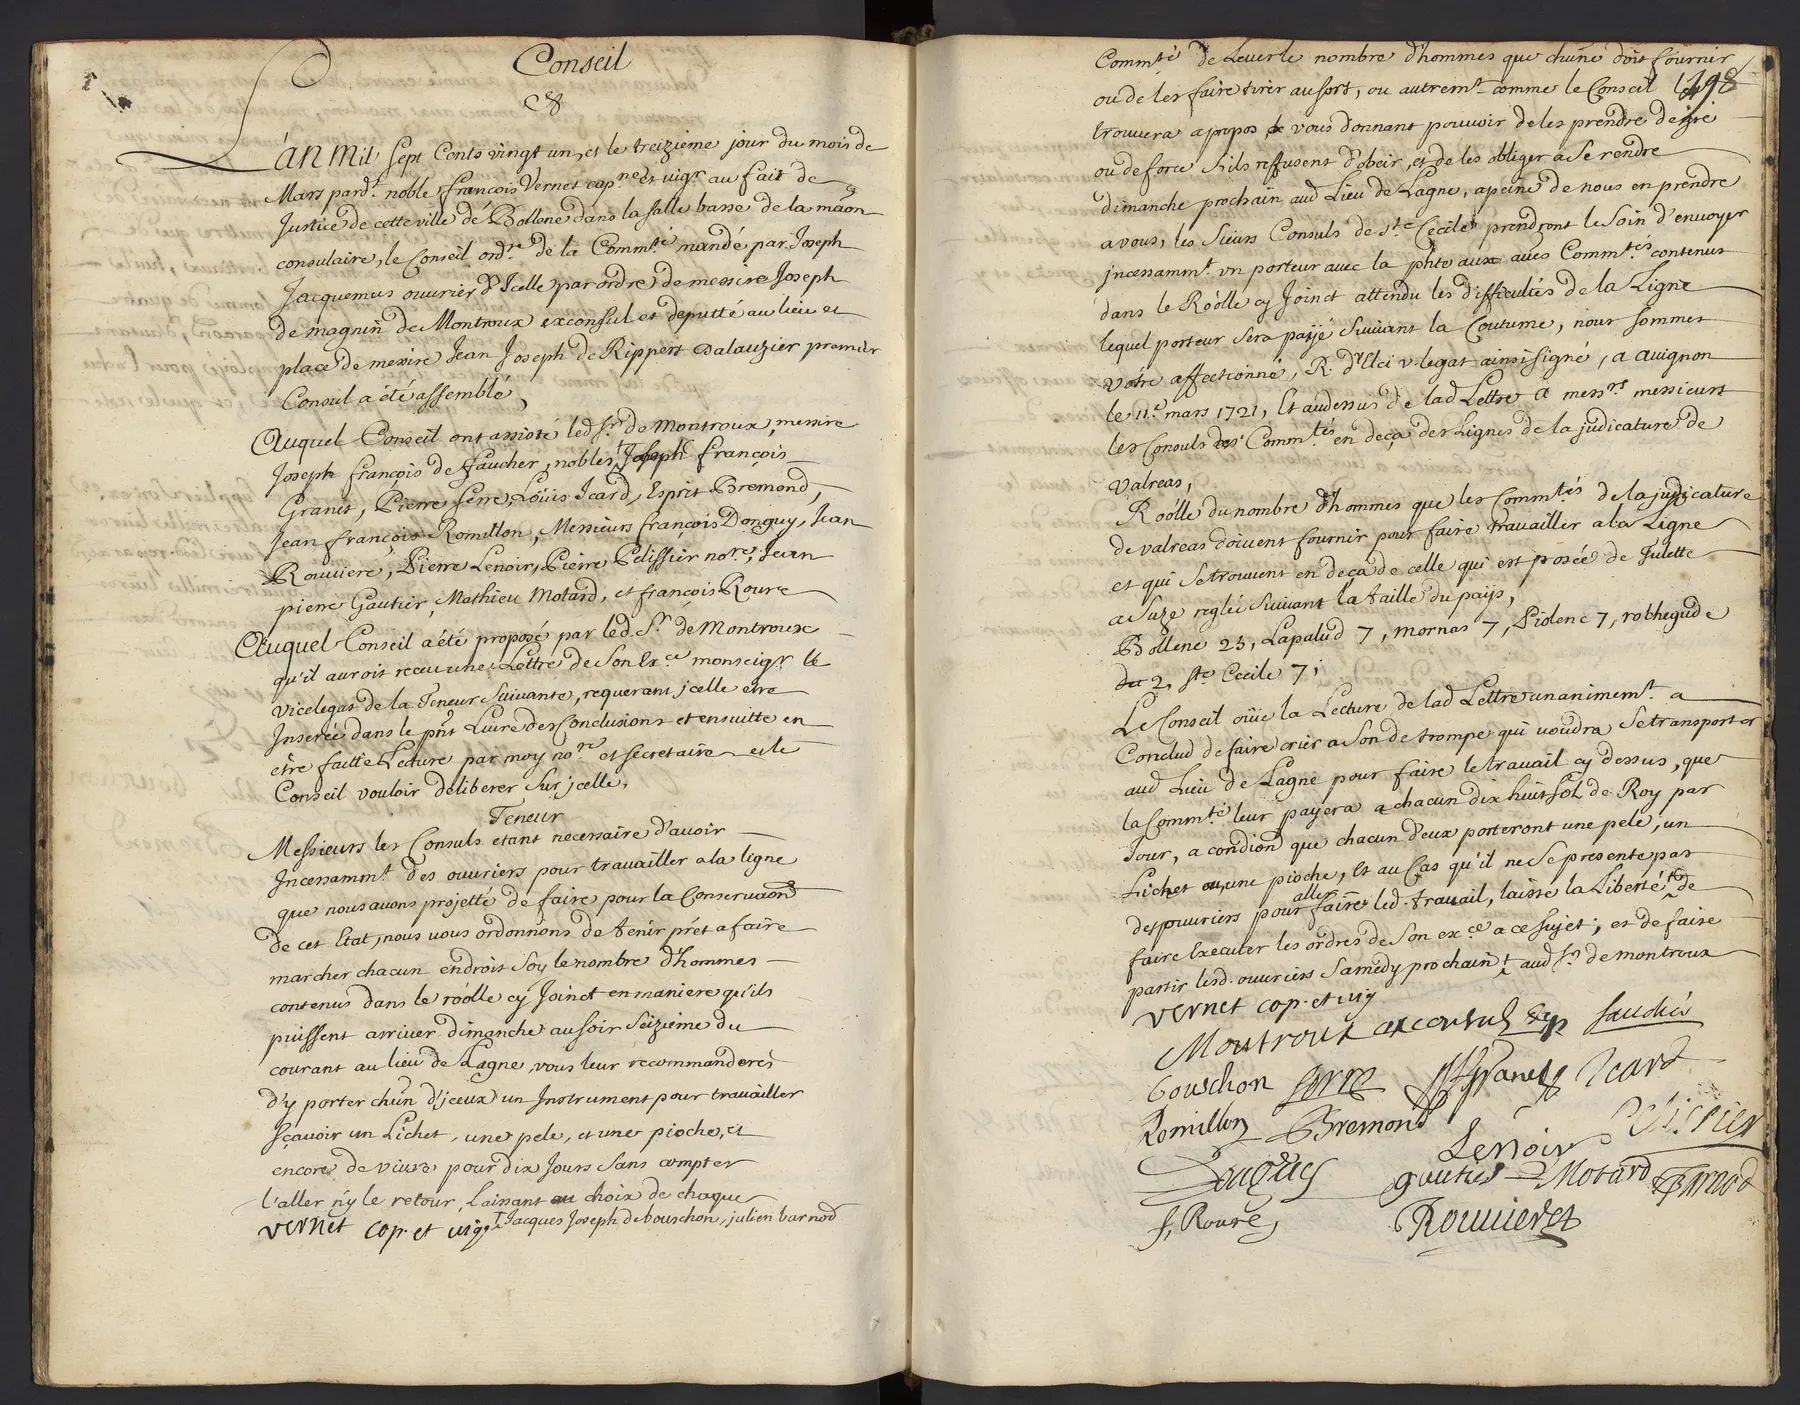 Conseil
L'an Mil sept Cents vingt un, et le treizieme jour du mois de
Mars pard.t noble françois Vernet cap.ne et vig.r au fait de
Justice de cette ville de Bollene dans la salle basse de la maon
consulaire, le Conseil ord.re de la Comm.té mandé par Joseph
Jacquemus ouvrier d'Icelle par ordre de messire Joseph
de magnin de Montroux exconsul et deputté au lieu et
place de messire Jean Joseph de Rippert Dalauzier premier
Consul a été assemblé,
Auquel Conseil ont assisté led. s.r de Montroux, messire
Joseph françois de Gaucher, nobles Joseph françois
Granet, Pierre Serre, Loüis Icard, Esprit Bremond,
Jean françois Romillon, Messieurs françois Donguy, Jean
Rouviere, Pierre Lenoir, Pierre Pelissier no.res, Jean
pierre Gautier, Mathieu Motard, et françois Roure
Auquel Conseil a été proposé par led. S.r de Montroux
qu'il auroit receu une Lettre de Son Ex.ce monseig.r le
vicelegat de la Teneur Suivante, requerant jcelle etre
Inserée dans le pnt Livre des Conclusions et ensuitte en
etre faitte Lecture par moy no.re et secretaire et le
Conseil vouloir deliberer Sur jcelle,
Teneur
Messieurs les Consuls etant necessaire d'avoir
Incessamm.t des ouvriers pour travailler a la ligne
que nous avons projetté de faire pour la Conservaon
de cet Etat, nous vous ordonnons de tenir prét a faire
marcher chacun endroit Soy le nombre d'hommes
contenus dans le róolle cy Joinct en maniere qu'ils
puissent arriver dimanche au soir Seizieme du
courant au lieu de Lagne, vous leur recommanderés
d'y porter chún d'jceux un Instrument pour travailler
sçavoir un Lichet, une pele, et une pioche, et
encore de vivre pour dix Jours sans compter
l'aller n'y le retour, laissant au choix de chaque
Vernet cap. et vig. † Jacques Joseph de bouschon, julien barnod
198
Comm.té de Lever le nombre d'hommes que chúne doit fournir
ou de les faire tirer au sort, ou autrem.t comme le Conseil le
trouvera a propos vous donnant pouvoir de les prendre de gré
ou de force s'ils reffusent d'obeir, et de les obliger a Se rendre
dimanche prochain aud. Lieu de Lagne, a peine de nous en prendre
a vous, les Sieurs Consuls de S.te Cecile prendront le Soin d'envoyer
jncessamm.t un porteur avec la pnte aux autres Comm.tés contenus
dans le Róolle cy Joinct attendu les difficultés de la Ligne
lequel porteur Sera payé Suivant la Coutume, nous sommes
vótre affectionné, R. d'Elci v. legat ainsi signé, a Avignon
le 11.e mars 1721, Et au dessus de lad. Lettre a mess.rs messieurs
les Consuls des Comm.tés en deça des Lignes de la judicature de
Valreas,
Róolle du nombre d'hommes que les Comm.tés de la judicature
de valreas doivent fournir pour faire travailler a la Ligne
et qui se trouvent en deça de celle qui est posée de Julette
a Suze reglé suivant la taille du païs,
Bollene 25, Lapalud 7, mornas 7, Piolenc 7, rochegude
2, ste Cecile 7;
Le Conseil oüie la Lecture de lad. Lettre unanimem.t a
Conclud de faire crier a Son de trompe qui voudra Se transporter
aud. Lieu de Lagne pour faire le travail cy dessus, que
la Comm.té leur payera a chacun dix huit sols de Roy par
Jour, a condion que chacun d'eux porteront une pele, un
Lichet ou une pioche, Et au Cas qu'il ne se presente pas
des ouvriers pour aller faire led. travail, laisse la Liberté de
faire Executer les ordres de Son ex.ce a ce Sujet; et de faire
partir lesd. ouvriers Samedy prochain † aud. s.r de montroux
Vernet cap. et vig
Montroux exconsul dep Gauchér
bouschon Serre JfGranet Icard
Romillon Bremond Lenoir Pelissier
Donguy gautier Motard Barnod
f. Roure Rouviere